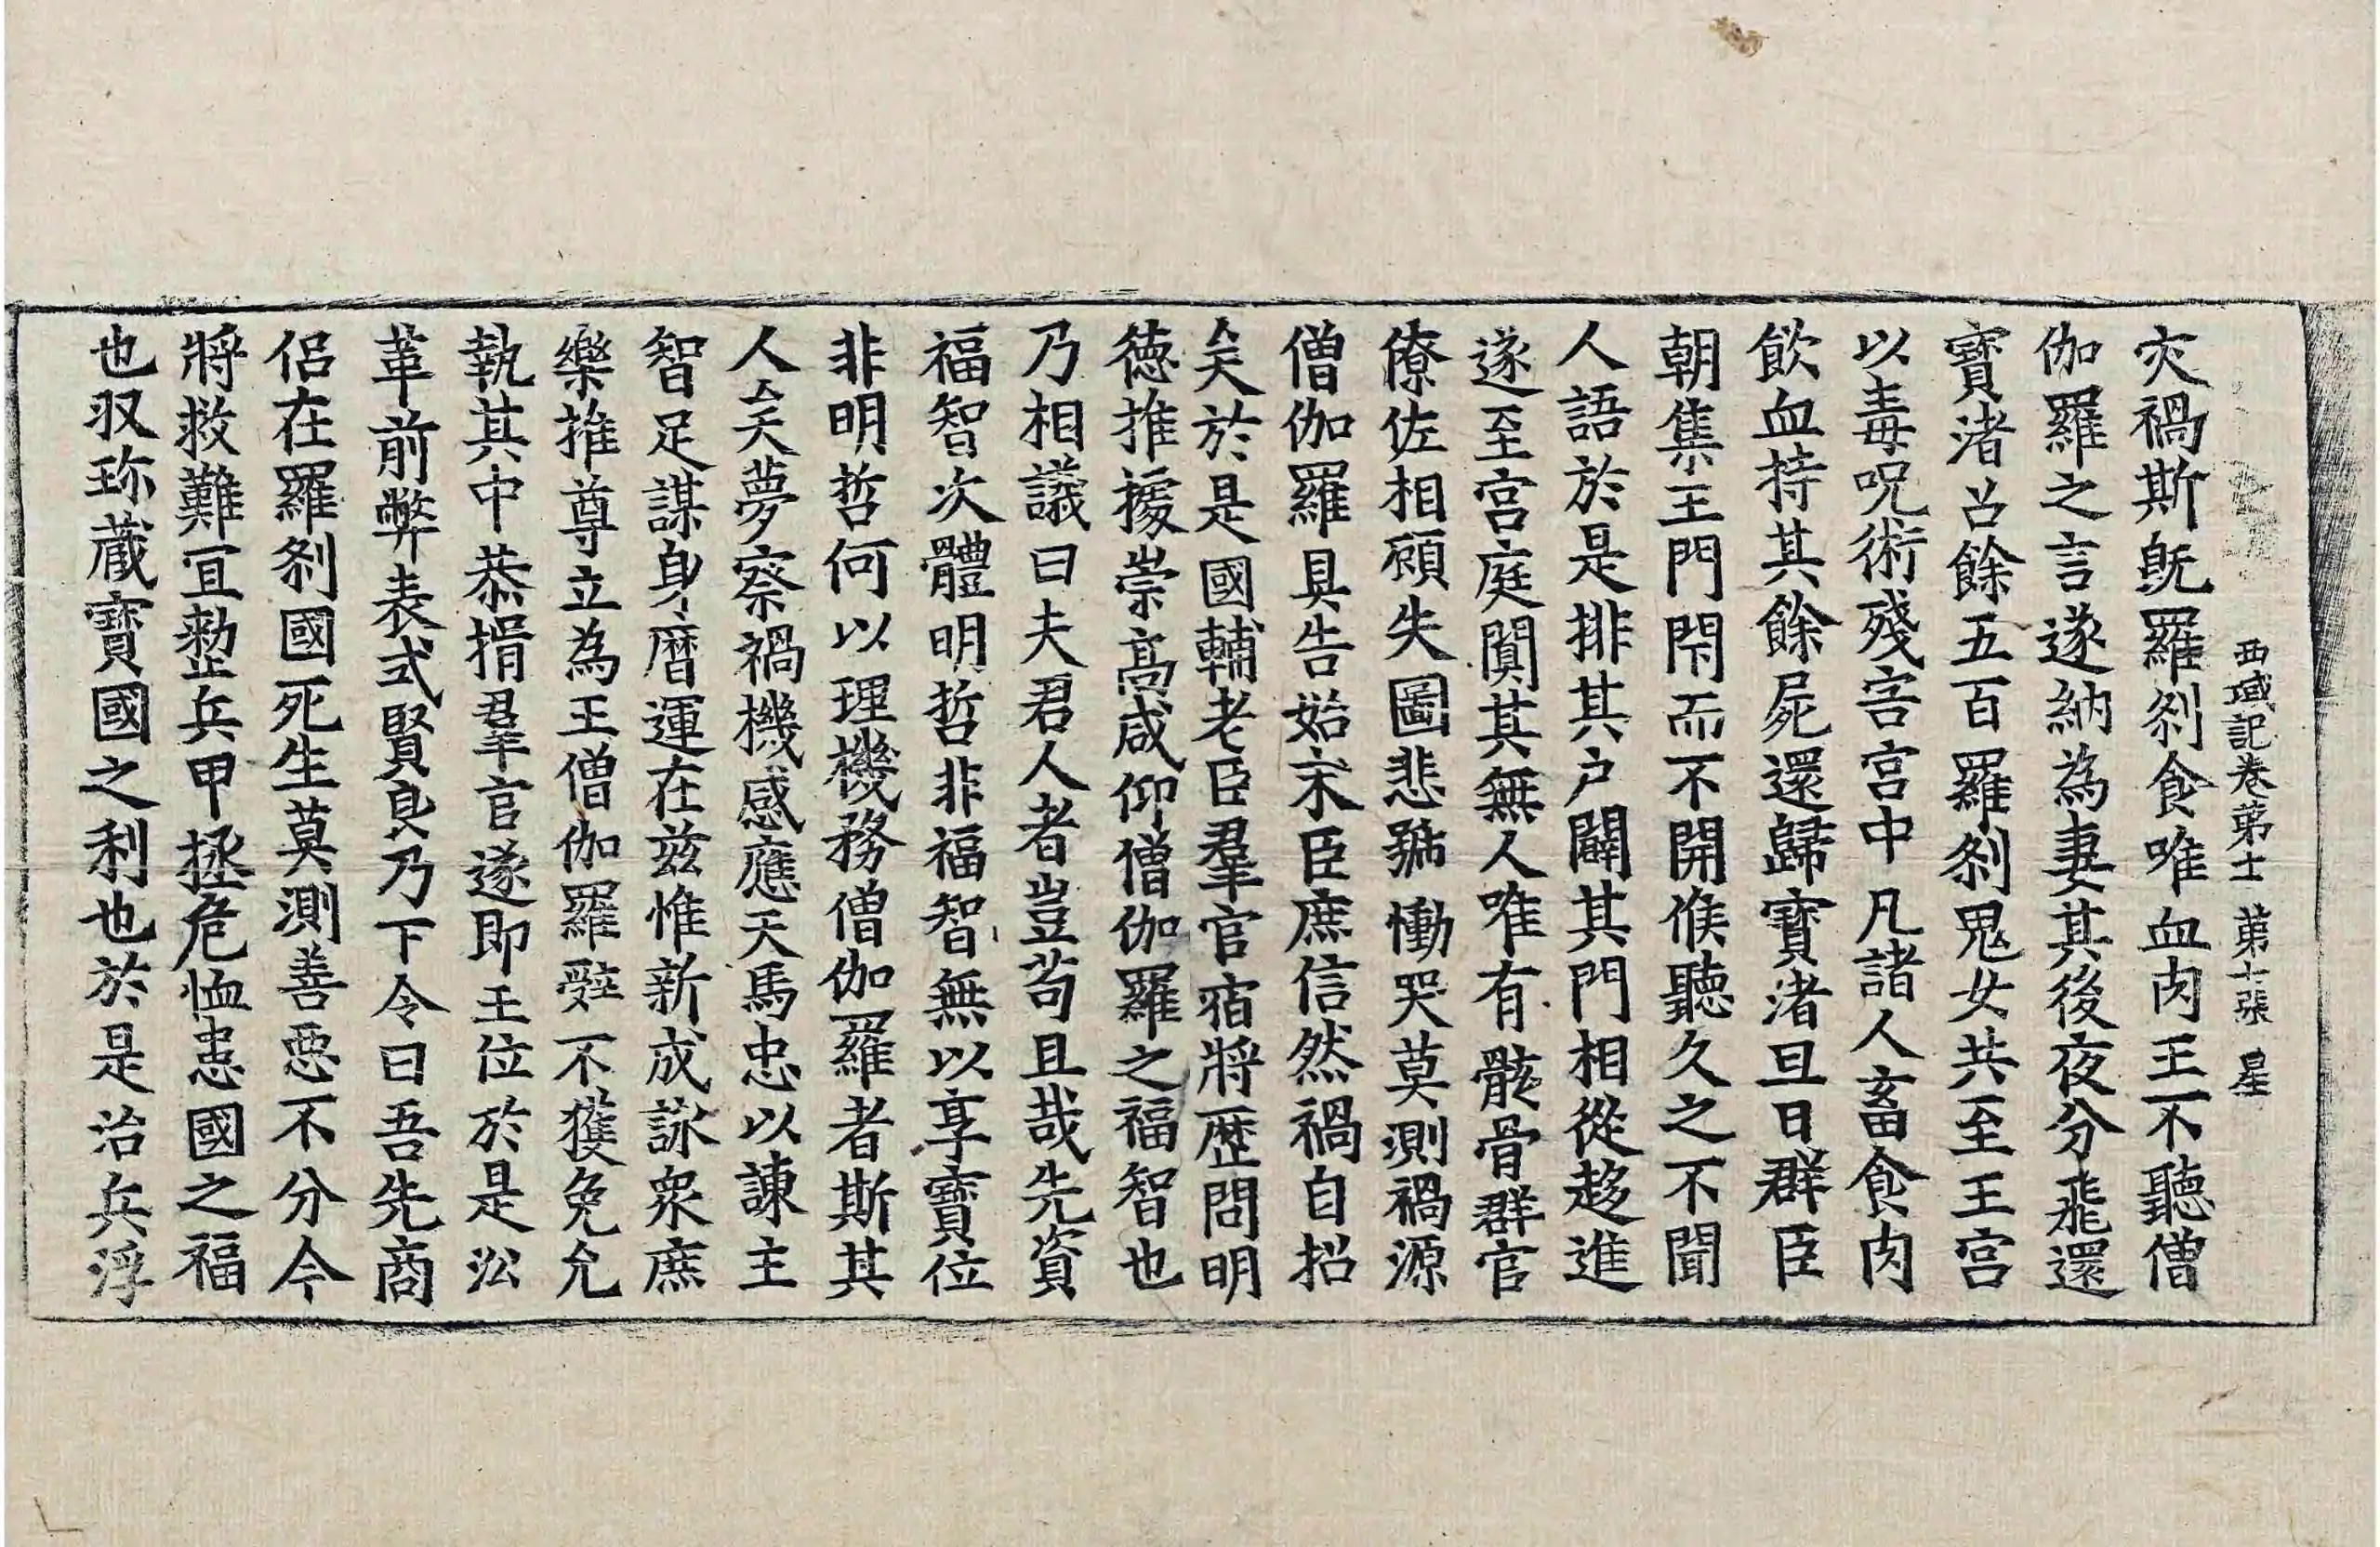 西域記卷第十一 第十張 星
灾禍斯旣羅刹食唯血肉王不聽僧
伽羅之言遂納為妻其後夜分飛還
寶渚召餘五百羅刹鬼女共至王宮
以毒呪術殘害宮中凡諸人畜食肉
飲血持其餘屍還歸寶渚旦日群臣
朝集王門閇而不開候聽久之不聞
人語於是排其户闢其門相從趍進
遂至宮庭闃其無人唯有骸骨群官
僚佐相顧失圖悲號慟哭莫測禍源
僧伽羅具告始末臣庶信然禍自招
矣於是國輔老臣羣官宿將歷問明
德推據崇高咸仰僧伽羅之福智也
乃相議曰夫君人者豈苟且哉先資
福智次體明哲非福智無以享寶位
非明哲何以理機務僧伽羅者斯其
人矣夢察禍機感應天馬忠以諫主
智足謀身曆運在兹惟新成詠衆庶
樂推尊立為王僧伽羅辤不獲免允
執其中恭揖羣官遂即王位於是㳂
革前弊表式賢良乃下令曰吾先商
侣在羅刹國死生莫測善惡不分今
將救難冝勑兵甲拯危恤患國之福
也収珎蔵寶國之利也於是治兵浮